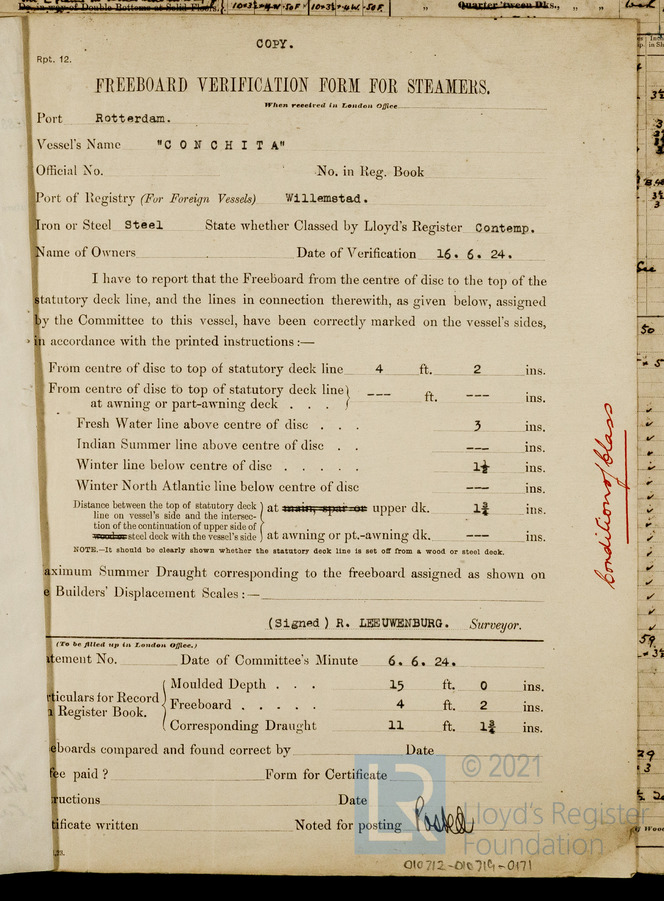 10×3½·4W.·50F 10×3½·4W.·50F. " Quarter 'tween Dks., " "
COPY.
Rpt. 12.
FREEBOARD VERIFICATION FORM FOR STEAMERS.
When received in London Office
Port Rotterdam.
Vessel's Name "CONCHITA"
Official No. No. in Reg. Book
Port of Registry (For Foreign Vessels) Willemstad.
Iron or Steel Steel State whether Classed by Lloyd's Register Contemp.
Name of Owners Date of Verification 16. 6. 24.
I have to report that the Freeboard from the centre of disc to the top of the
statutory deck line, and the lines in connection therewith, as given below, assigned
by the Committee to this vessel, have been correctly marked on the vessel's sides,
in accordance with the printed instructions :—
From centre of disc to top of statutory deck line 4 ft. 2 ins.
From centre of disc to top of statutory deck line
at awning or part-awning deck . . . --- ft. --- ins.
Fresh Water line above centre of disc . . . 3 ins.
Indian Summer line above centre of disc . . --- ins.
Winter line below centre of disc . . . . . 1½ ins.
Winter North Atlantic line below centre of disc --- ins.
Distance between the top of statutory deck
line on vessel's side and the intersec-
tion of the continuation of upper side of
wood or steel deck with the vessel's side
at main, spar or upper dk. 1¾ ins.
at awning or pt.-awning dk. --- ins.
NOTE.—It should be clearly shown whether the statutory deck line is set off from a wood or steel deck.
aximum Summer Draught corresponding to the freeboard assigned as shown on
e Builders' Displacement Scales :—
(Signed) R. LEEUWENBURG. Surveyor.
(To be filled up in London Office.)
tement No. Date of Committee's Minute 6. 6. 24.
rticulars for Record
Register Book.
Moulded Depth . . . 15 ft. 0 ins.
Freeboard . . . . . 4 ft. 2 ins.
Corresponding Draught 11 ft. 1¾ ins.
eboards compared and found correct by Date
fee paid ? Form for Certificate
ructions Date
tificate written Noted for posting Posted
Conditions of Class
LR
© 2021
Lloyd's Register
Foundation
010712-010719-0171